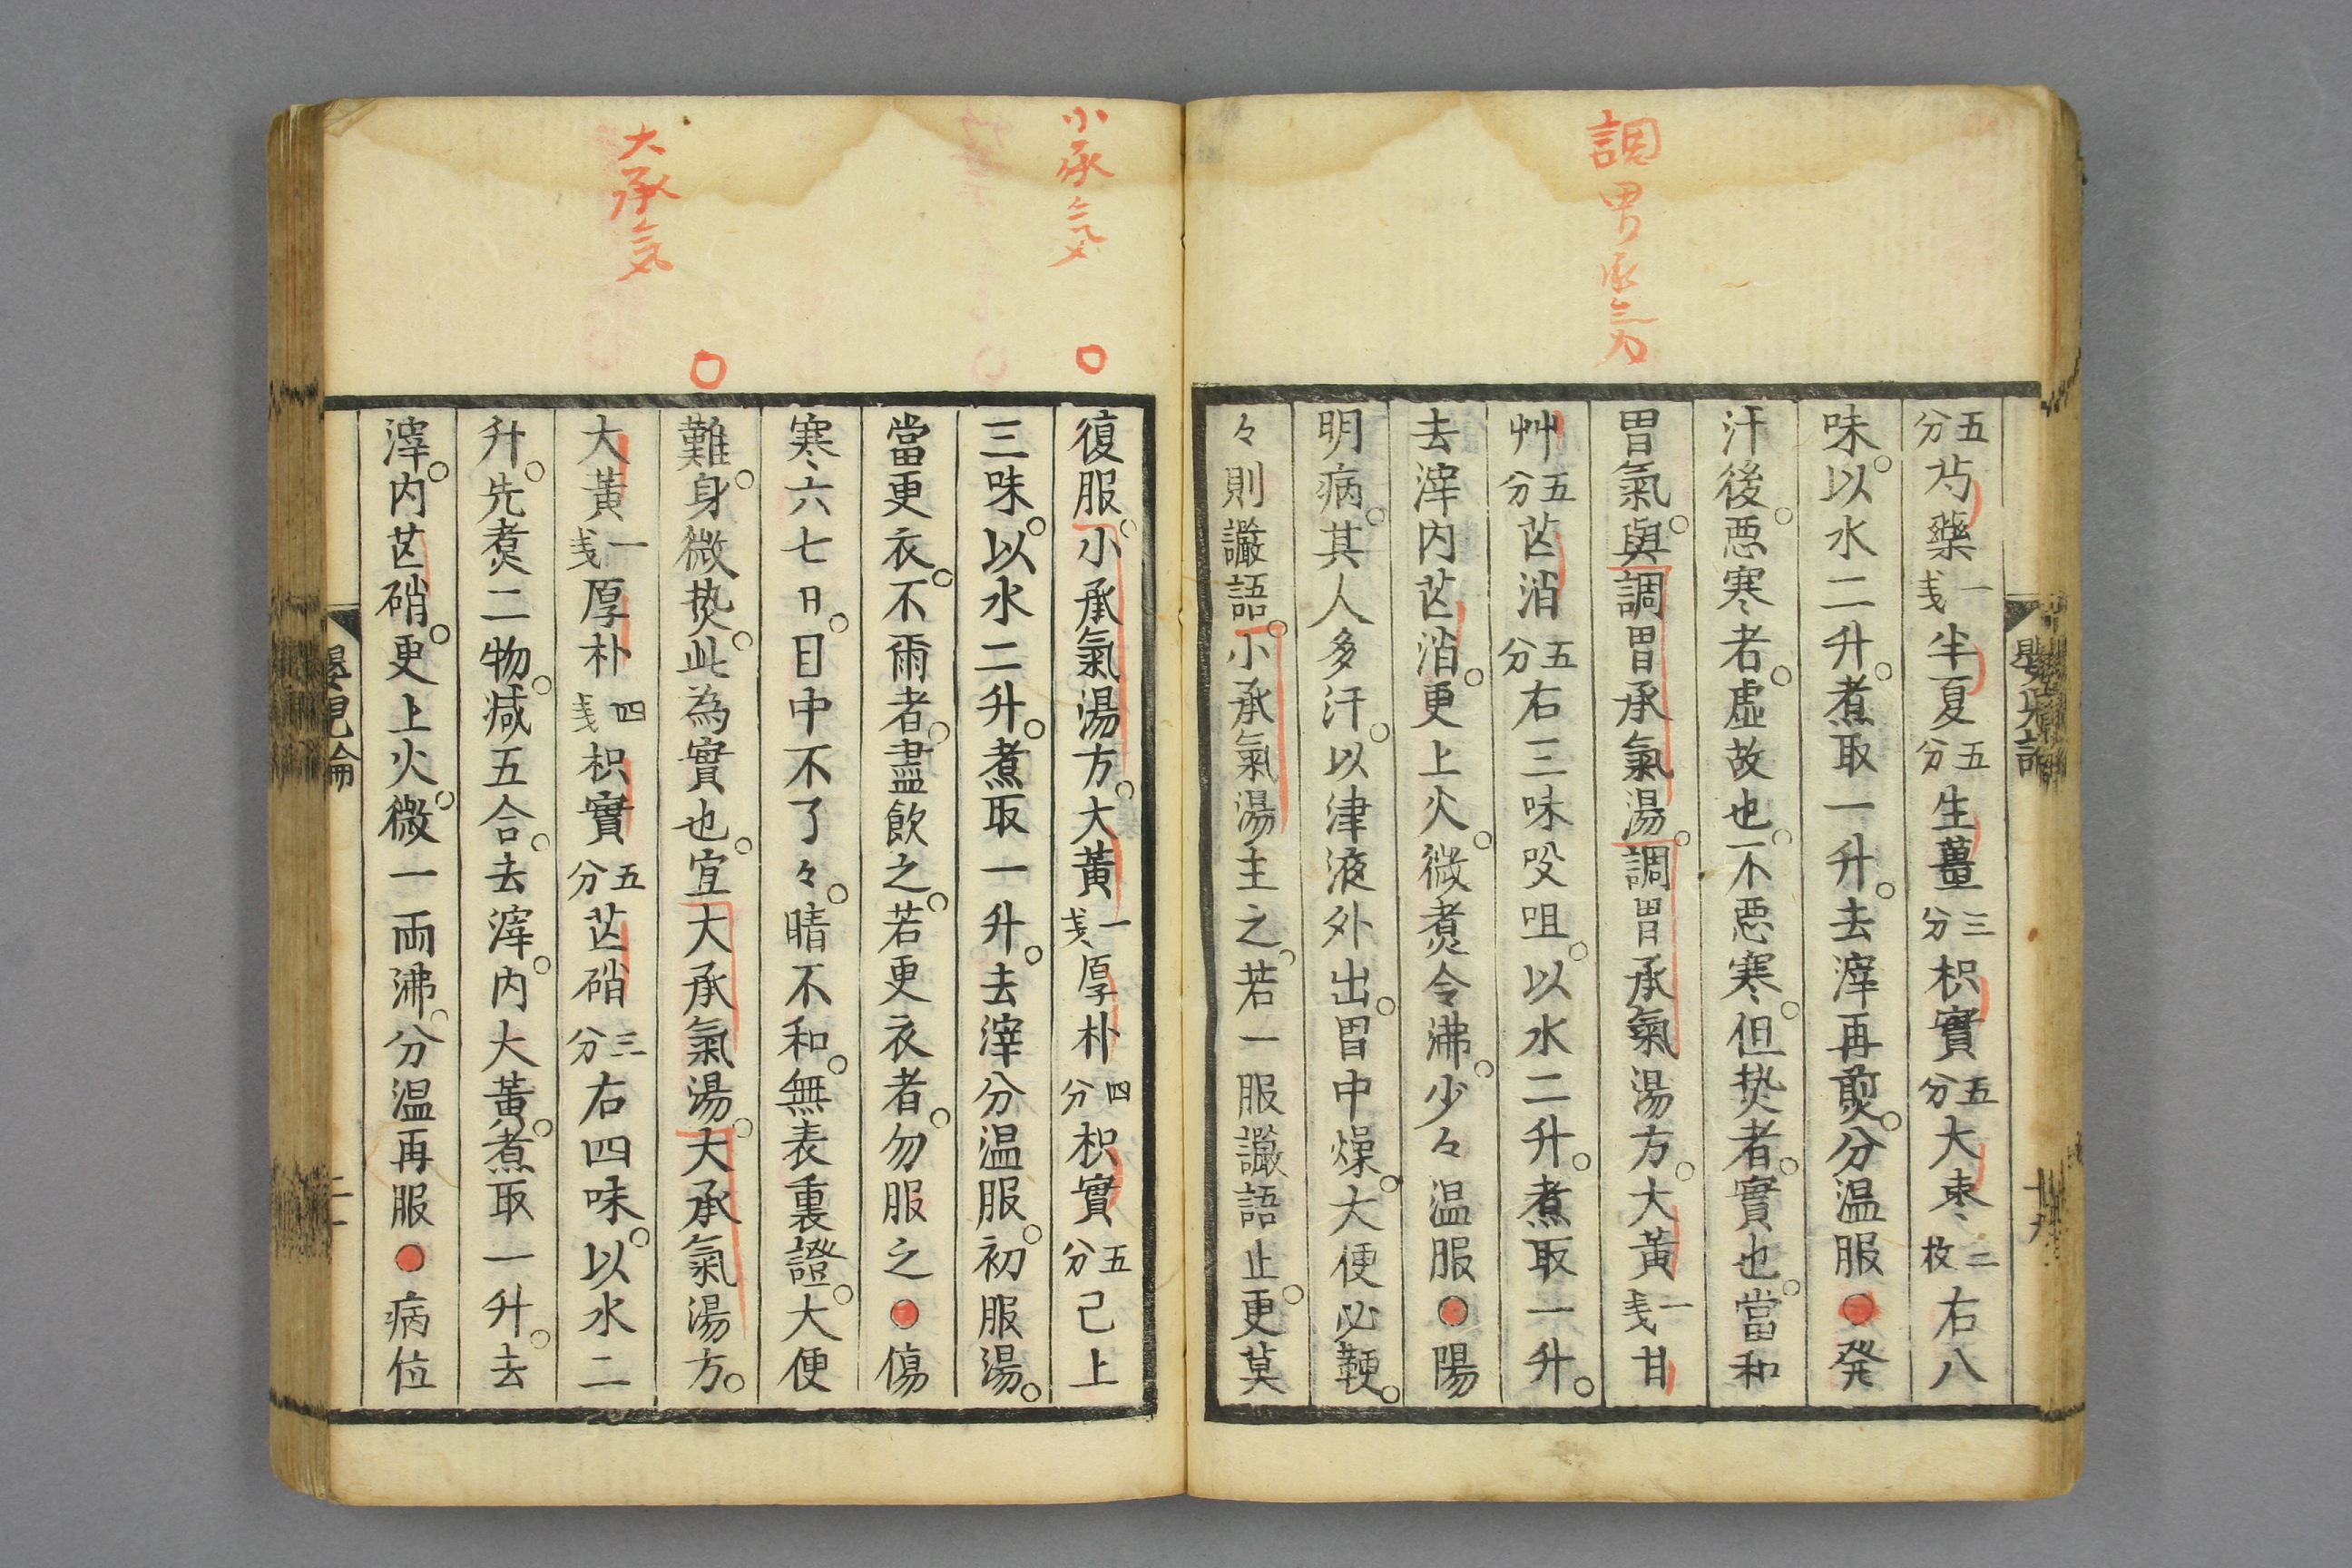 調胃承気
五分芍藥一戔半夏五分生薑三分枳實五分大枣二枚右八
味以水二升煮取一升去滓再煎分温服●発
汗後悪寒者虚故也不悪寒但㷍者實也當和
胃氣與調胃承氣湯調胃承氣湯方大黄一戔甘
艸五分芒消五分右三味㕮咀以水二升煮取一升
去滓内芒消更上火微煮令沸少々温服●陽
明病其人多汗以津液外出胃中燥大便必鞕
々則讝語小承氣湯主之若一服讝語止更莫
小承氣
大承氣
復服小承氣湯方大黄一戔厚朴四分枳實五分已上
三味以水二升煮取一升去滓分温服初服湯
當更衣不爾者盡飲之若更衣者勿服之●傷
寒六七日目中不了々睛不和無表裏證大便
難身微㷍此為實也宜大承氣湯大承氣湯方
大黄一戔厚朴四戔枳實五分芒硝三分右四味以水二
升先煮二物減五合去滓内大黄煮取一升去
滓内芒硝更上火微一両沸分温再服●病位